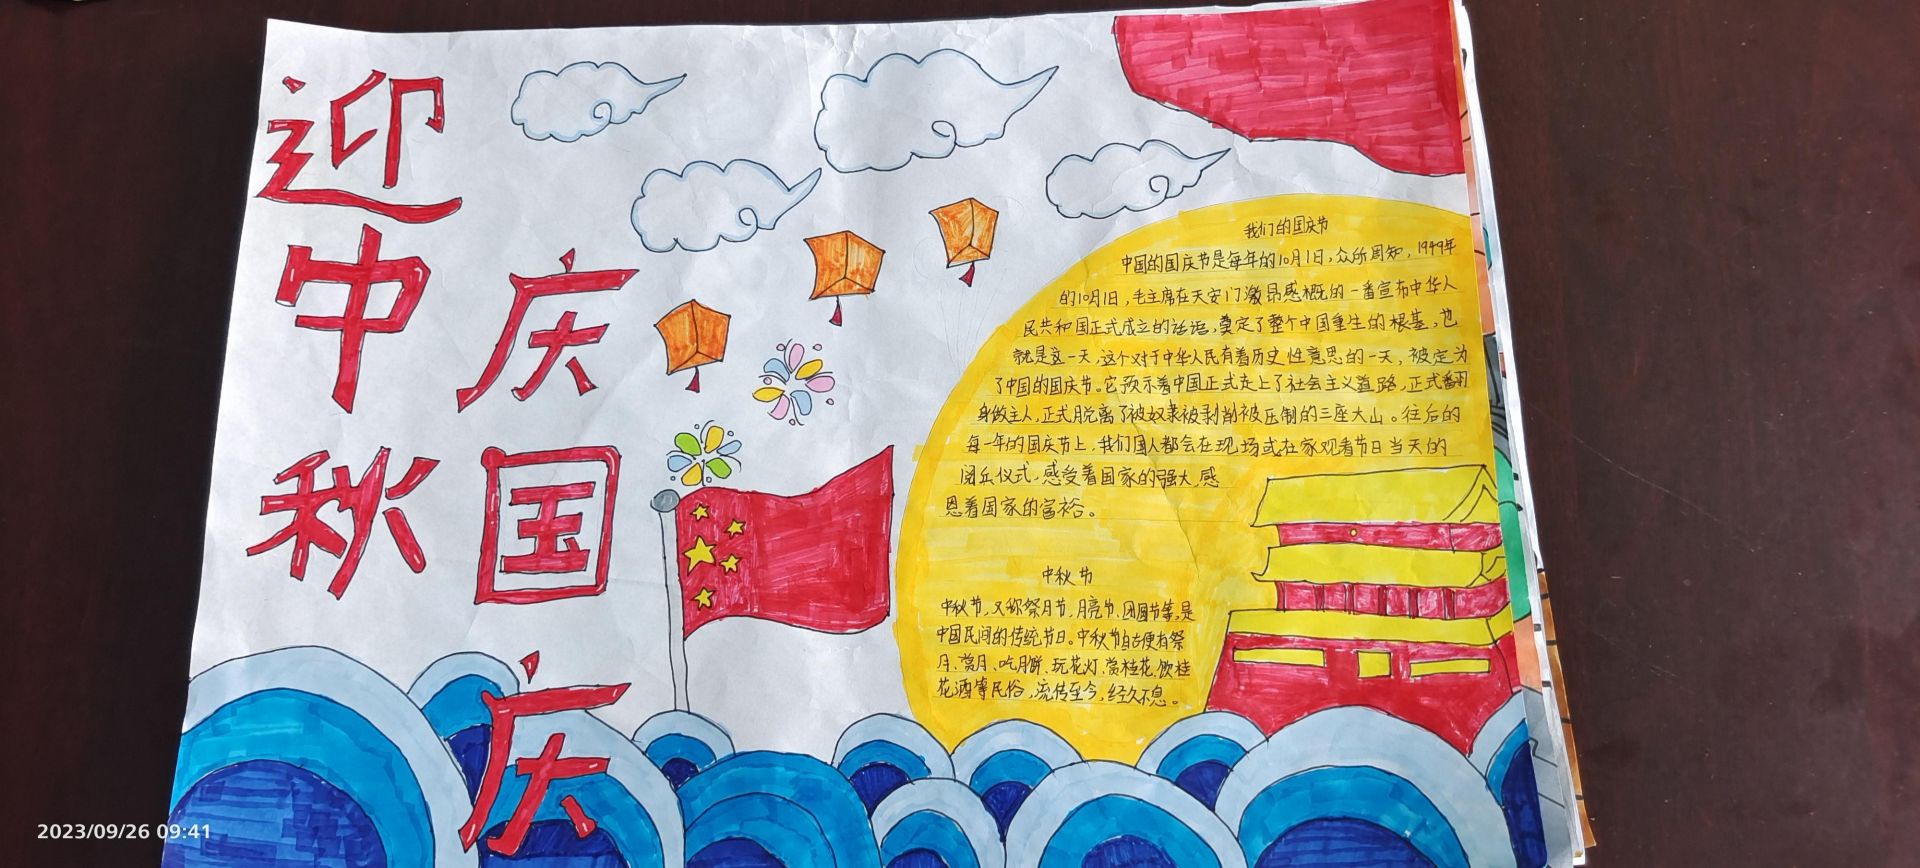 迎中秋
庆国庆
我们的国庆节
中国的国庆节是每年的10月1日,众所周知,1949年
的10月1日,毛主席在天安门激昂感概的一番宣布中华人
民共和国正式成立的话语,奠定了整个中国重生的根基,也
就是这一天,这个对于中华人民有着历史性意思的一天,被定为
了中国的国庆节。它预示着中国正式走上了社会主义道路,正式翻
身做主人,正式脱离了被奴隶被剥削被压制的三座大山。往后的
每一年的国庆节上,我们国人都会在现场或在家观看节日当天的
阅兵仪式,感受着国家的强大,感
恩着国家的富裕。
中秋节
中秋节,又称祭月节,月亮节、团圆节等,是
中国民间的传统节日。中秋节自古便有祭
月、赏月、吃月饼、玩花灯、赏桂花、饮桂
花酒等民俗,流传至今,经久不息。
2023/09/26 09:41